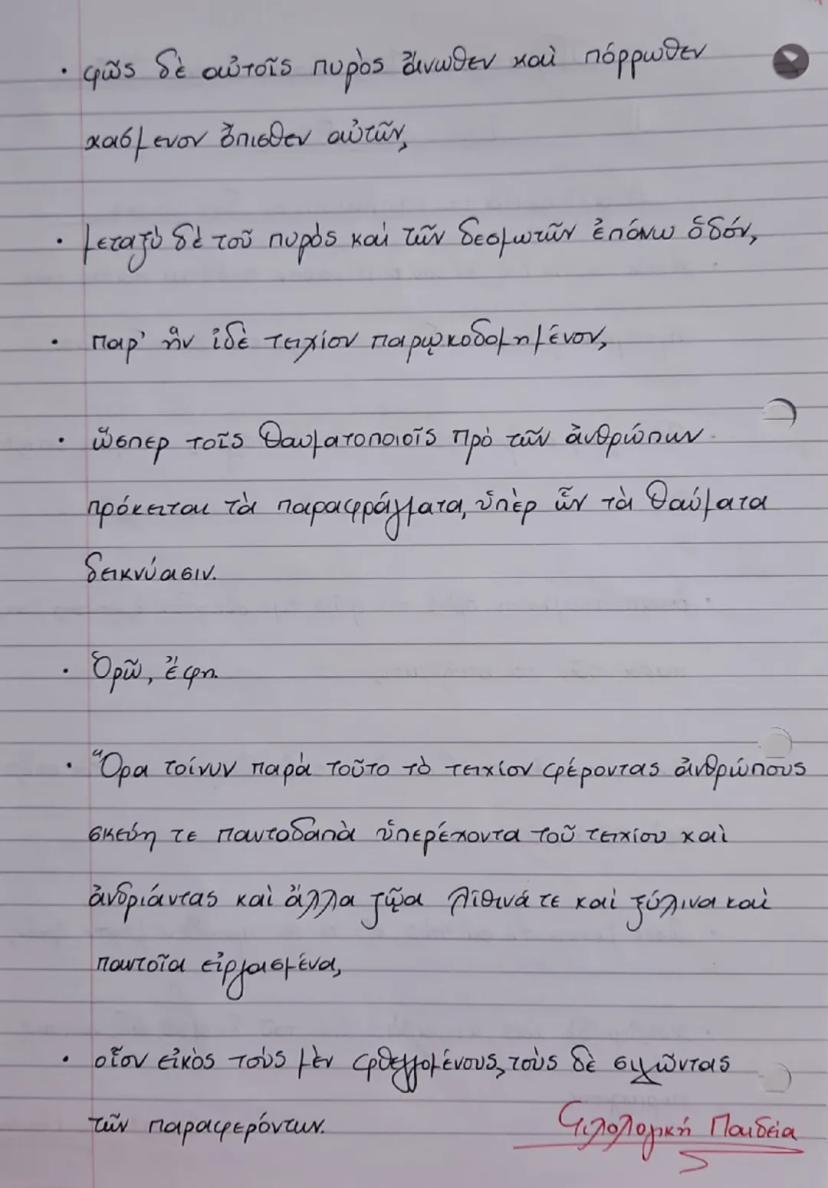 · φῶς δὲ αὐτοῖς πυρὸς ἄνωθεν καὶ πόρρωθεν
καόμενον ὄπισθεν αὐτῶν,
· μεταξὺ δὲ τοῦ πυρός καὶ τῶν δεσμωτῶν ἐπάνω ὁδόν,
· παρ' ἣν ἰδὲ τειχίον παρῳκοδομημένον,
· ὥσπερ τοῖς θαυματοποιοῖς πρὸ τῶν ἀνθρώπων
πρόκειται τὰ παραφράγματα, ὑπὲρ ὧν τὰ θαύματα
δεικνύασιν.
· Ὁρῶ, ἔφη.
· Ὅρα τοίνυν παρὰ τοῦτο τὸ τειχίον φέροντας ἀνθρώπους
σκεύη τε παντοδαπὰ ὑπερέχοντα τοῦ τειχίου καὶ
ἀνδριάντας καὶ ἄλλα ζῷα λίθινά τε καὶ ξύλινα καὶ
παντοῖα εἰργασμένα,
· οἷον εἰκὸς τοὺς μὲν φθεγγομένους, τοὺς δὲ σιγῶντας
τῶν παραφερόντων.
Φιλολογική Παιδεία